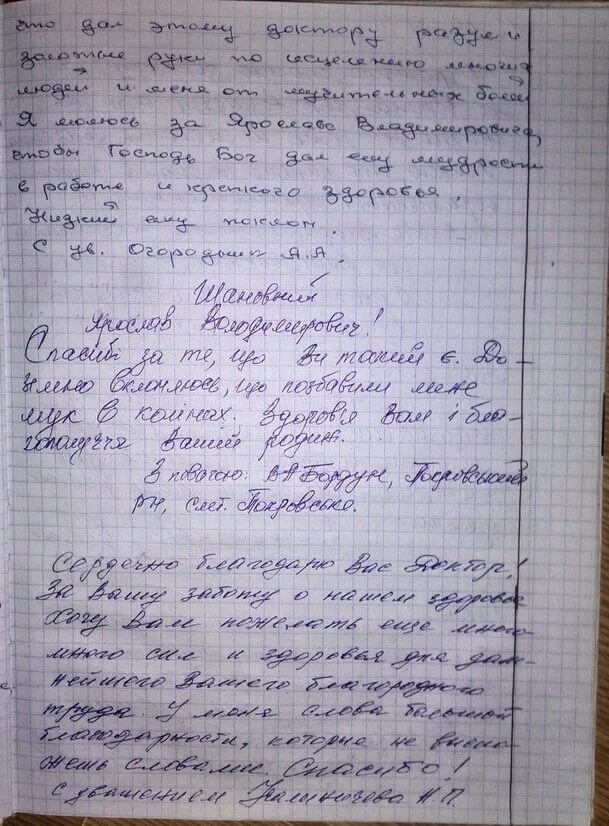 что дал этому доктору разум и
золотые руки по исцелению многих
людей и меня от мучительных болей
Я молюсь за Ярослава Владимировича,
чтобы Господь Бог дал ему мудрости
в работе и крепкого здоровья.
Низкий ему поклон.
С ув. Огородник А.А.
Шановний
Ярослав Володимирович!
Спасибі за те, що Ви такий є. До
землі вклоняюсь, що позбавили мене
мук в колінах. Здоров'я Вам і бла-
гополуччя Вашій родині.
З повагою: В.А Бордун, Покровський
р-н, смт. Покровське.
Сердечно благодарю Вас Доктор!
За Вашу заботу о нашем здоровье
Хочу Вам пожелать еще много-
много сил и здоровья для даль-
нейшого Вашего благородного
труда. У меня слова большой
благодарности, которые не выска-
жешь словами. Спасибо!
с уважением Калиничева Н.П.